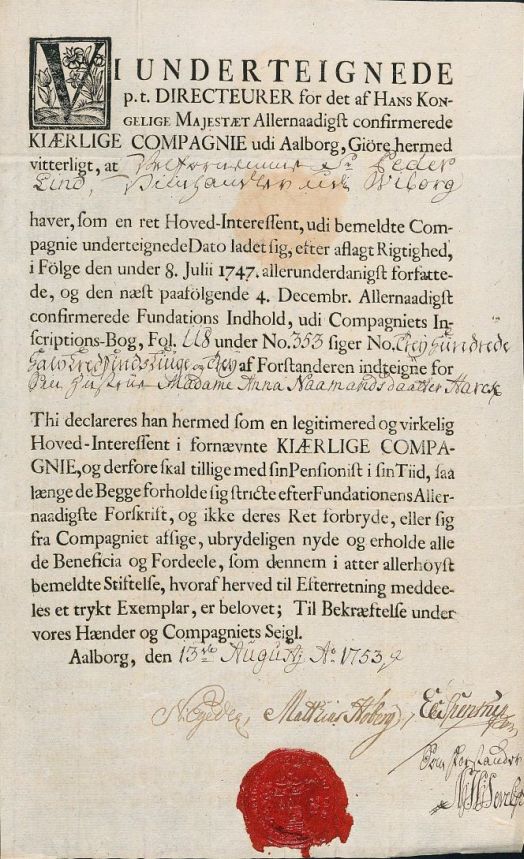 VI UNDERTEIGNEDE
p. t. DIRECTEURER for det af HANS KON-
GELIGE MAJESTÆT Allernaadigst confirmerede
KIÆRLIGE COMPAGNIE udi Aalborg, Giöre hermed
vitterligt, at Velfornemme Sr. Peder
Lind, Viinhandler udi Wiborg
haver, som en ret Hoved-Interessent, udi bemeldte Com-
pagnie underteignede Dato ladet sig, efter aflagt Rigtighed,
i Fölge den under 8. Julii 1747. allerunderdanigst forfatte-
de, og den næst paafölgende 4. Decembr. Allernaadigst
confirmerede Fundations Indhold, udi Compagniets In-
scriptions-Bog, Fol. 118 under No. 353 siger No. Trey Hundrede
Halvtredsindstiuge og Trey af Forstanderen indteigne for
Sin Hustrue Madame Anna Naamandsdaatter Harck
Thi declareres han hermed som en legitimered og virkelig
Hoved-Interessent i fornævnte KIÆRLIGE COMPA-
GNIE, og derfore skal tillige med sin Pensionist i sin Tiid, saa
længe de Begge forholde sig stricte efter Fundationens Aller-
naadigste Forskrift, og ikke deres Ret forbryde, eller sig
fra Compagniet afsige, ubrydeligen nyde og erholde alle
de Beneficia og Fordeele, som dennem i atter allerhöyst
bemeldte Stiftelse, hvoraf herved til Efterretning meddee-
les et trykt Exemplar, er belovet; Til Bekræftelse under
vores Hænder og Compagniets Seigl.
Aalborg, den 13de Augustj Ao. 1753
Mathias Hoberg,